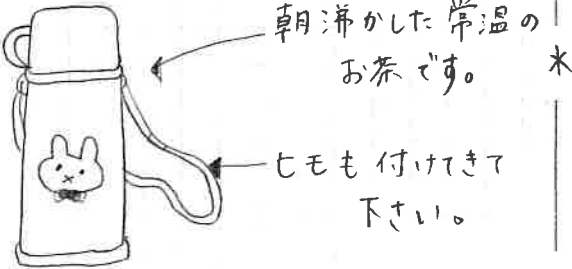 朝沸かした常温の
お茶です。
ヒモも付けてきて
下さい。
水